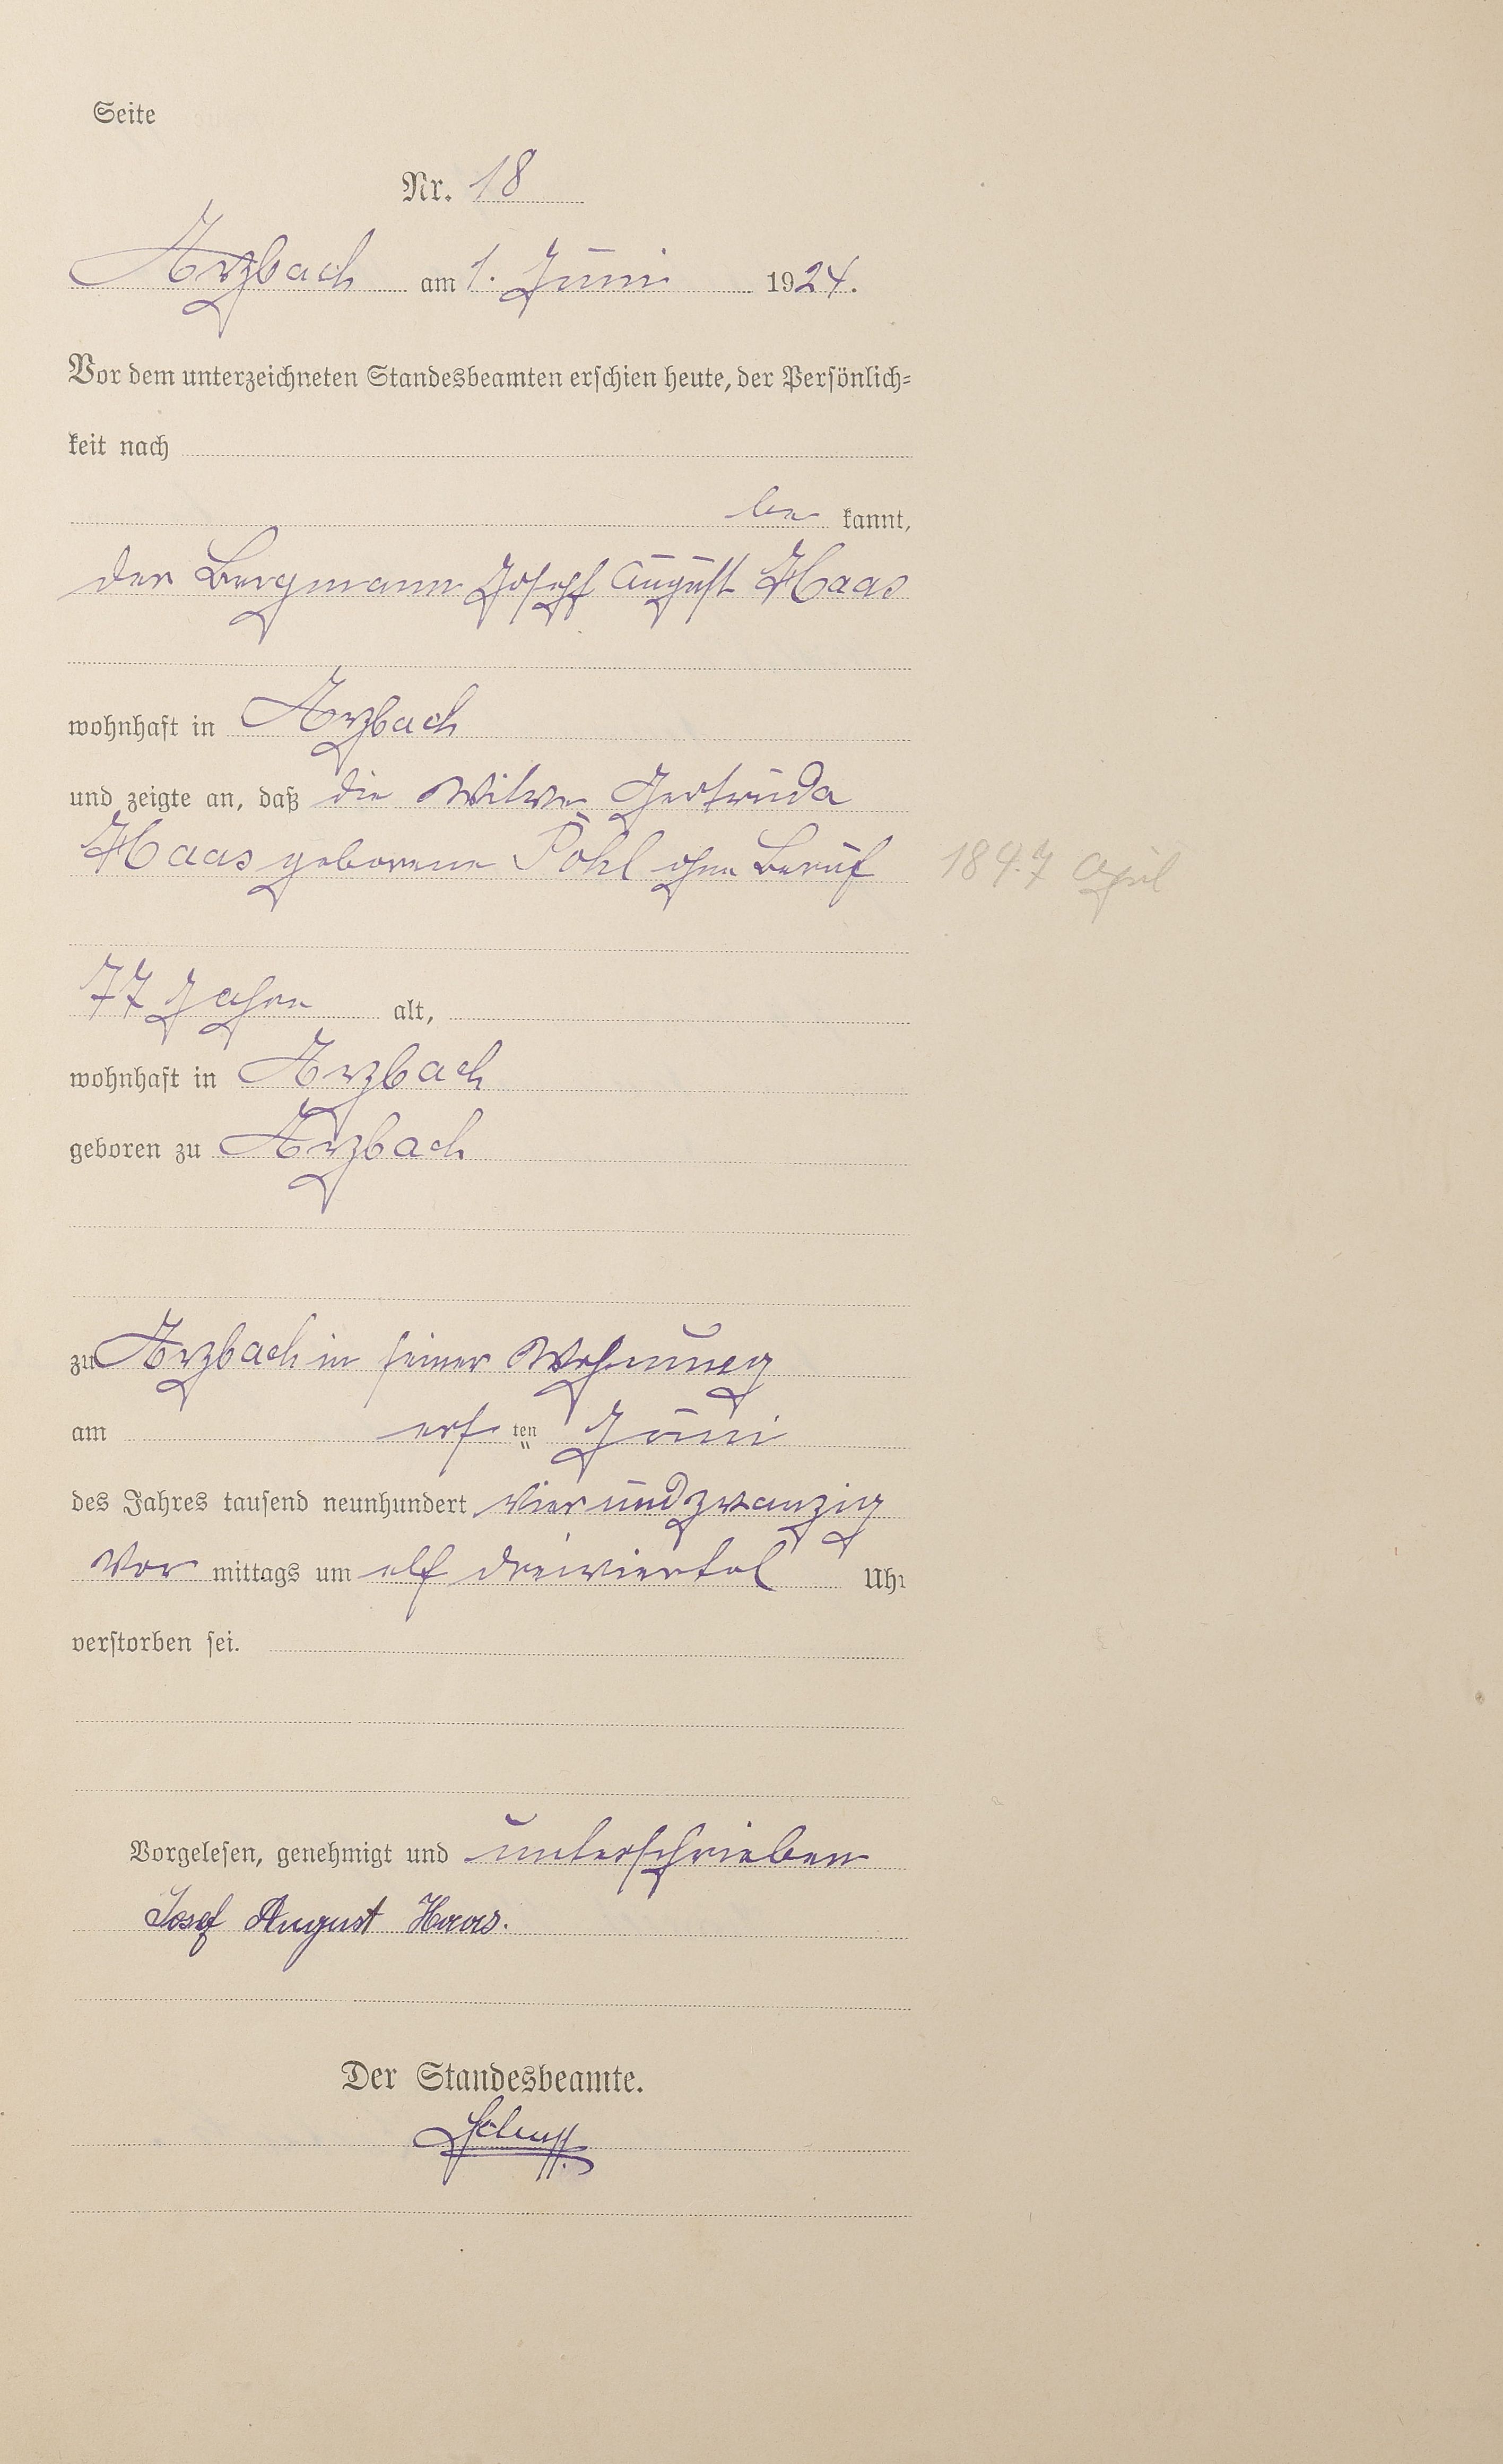 Seite
Nr. 18
Arzbach am 1. Juni 1924.
Vor dem unterzeichneten Standesbeamten erschien heute, der Persönlich=
keit nach
be kannt,
der Bergmann Joseph August Haas
wohnhaft in Arzbach
und zeigte an, daß die Witwe Gertruda
Haas geborene Pöhl ohne Beruf
1847 April
77 Jahre alt,
wohnhaft in Arzbach
geboren zu Arzbach
zu Arzbach in seiner Wohnung
am ersten Juni
des Jahres tausend neunhundert vierundzwanzig
Vor mittags um elf dreiviertel Uhr
verstorben sei.
Vorgelesen, genehmigt und unterschrieben
Josef August Haas.
Der Standesbeamte.